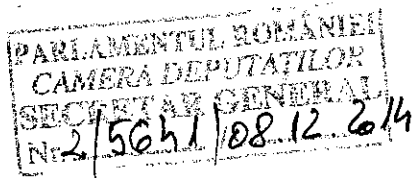 PARLAMENTUL ROMÂNIEI
CAMERA DEPUTAŢILOR
SECRETAR GENERAL
Nr. 2/5641/08.12.2014